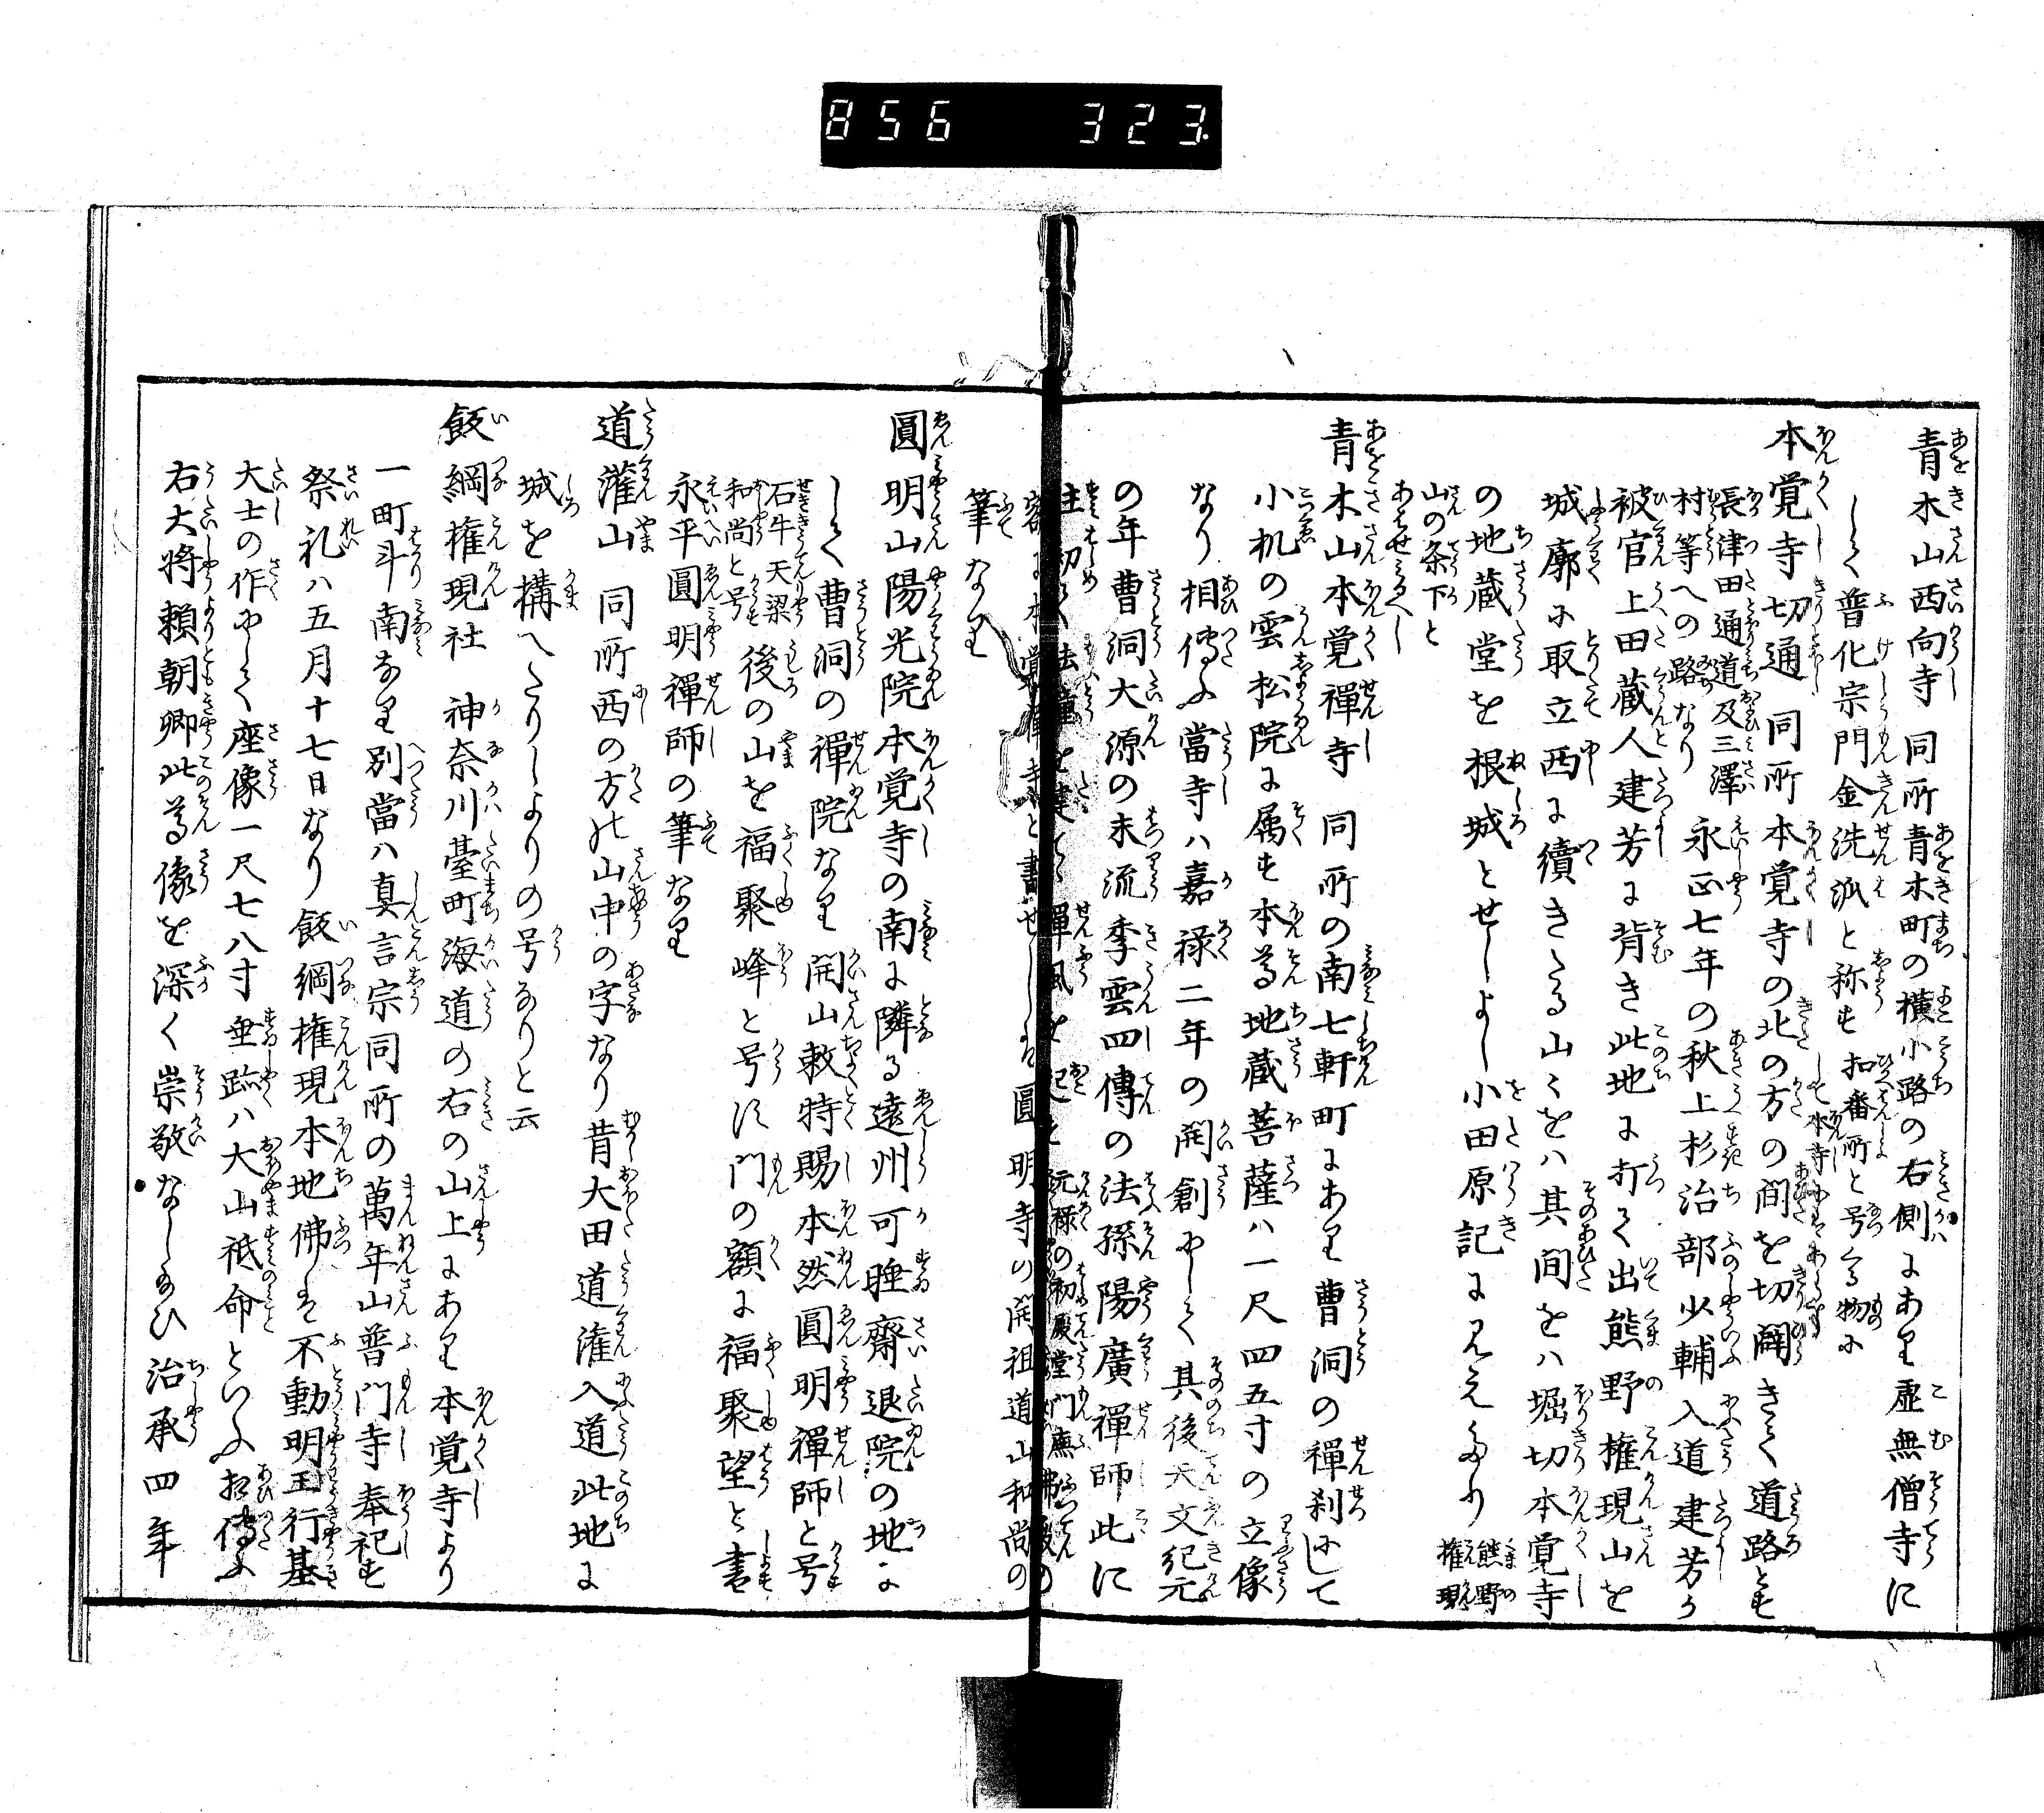 856 323
青木山西向寺 同所青木町の横小路の右側にあり虚無僧寺に
して普化宗門金洗派と称す
本覚寺切通 同所本覚寺の北の方の間を切開きて道路とす
長津田通道及三澤
村等への路なり
永正七年の秋上杉治部少輔入道建芳か
被官上田蔵人建芳に背き此地に打て出熊野権現山を
城廓に取立西に續きたる山〻をハ其間をハ堀切本覚寺
の地蔵堂を根城とせしよし小田原記に見えたり
熊野
権現
山の条下と
あはせみるへし
青木山本覚禪寺 同所の南七軒町にあり曹洞の禪刹にして
小机の雲松院に属す本尊地蔵菩薩ハ一尺四五寸の立像
なり相傳ふ當寺ハ嘉禄二年の開創にして其後天文紀元
の年曹洞大源の末流季雲四傳の法孫陽廣禪師此に
住初て法幢を建て禪風を起と
額に本覚禪寺と書せしは圓明寺の開祖道山和尚の
筆なり
圓明山陽光院本覚寺の南に隣る遠州可睡齋退院の地に
して曹洞の禪院なり開山敕特賜本然圓明禪師と号
石牛天梁
和尚と号
後の山を福聚峰と号す門の額に福聚望と書
永平圓明禪師の筆なり
道灌山 同所西の方の山中の字なり昔大田道灌入道此地に
城を構へたりしよりの号なりと云
飯綱権現社 神奈川臺町海道の右の山上にあり本覚寺より
一町斗南なり別當ハ真言宗同所の萬年山普門寺奉祀す
祭礼ハ五月十七日なり飯綱権現本地佛は不動明王行基
大士の作にして座像一尺七八寸垂跡ハ大山祇命といふ相傳ふ
右大將頼朝卿此尊像を深く崇敬なし給ひ治承四年